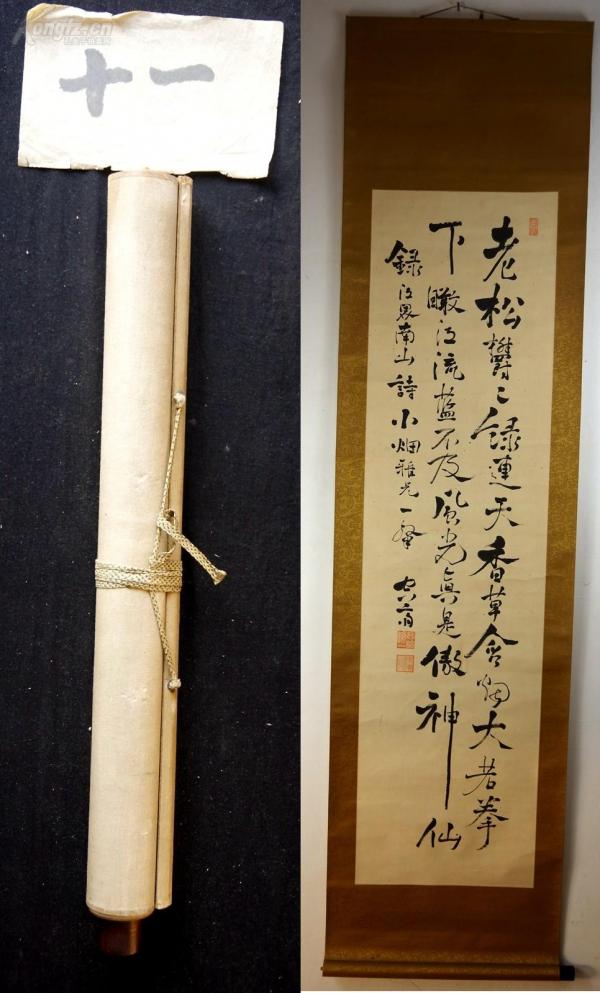 Kongfz.cn
十一
老松欝〻緑連天香草含烟大若拳
下瞰江流藍不及風光真是傲神仙
録江界南山詩小畑雅兄一粲